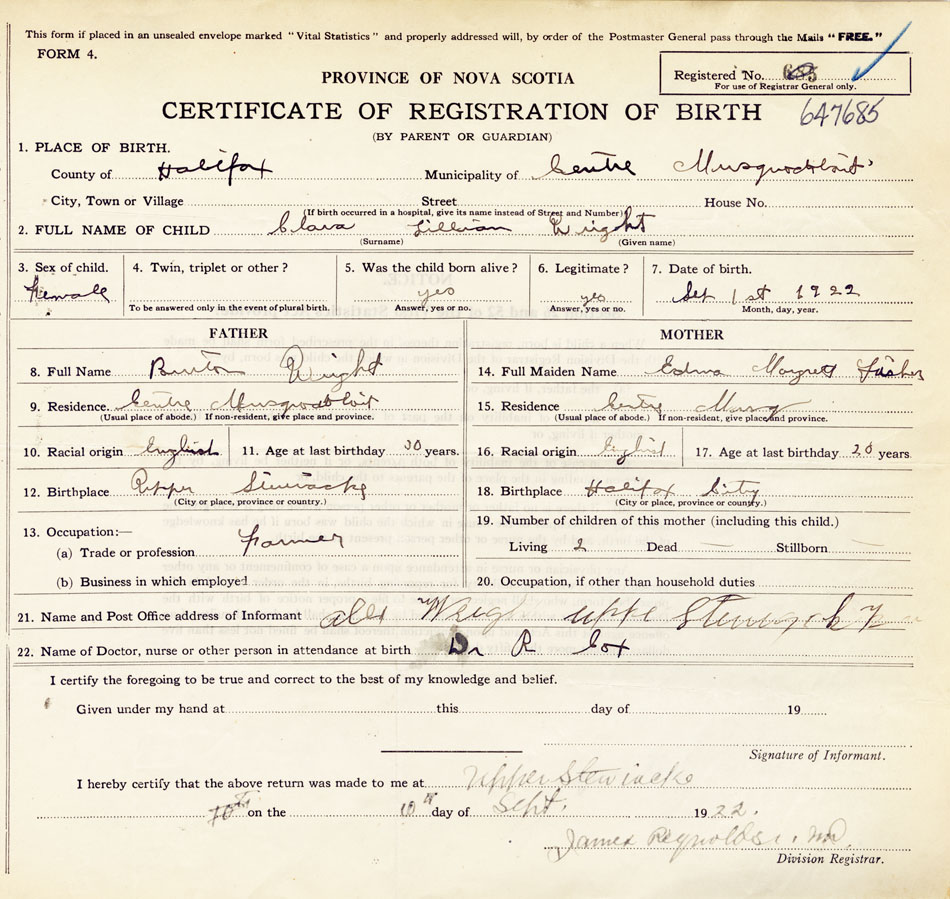 This form if placed in an unsealed envelope marked "Vital Statistics" and properly addressed will, by order of the Postmaster General pass through the Mails "FREE."
FORM 4.
PROVINCE OF NOVA SCOTIA
Registered No. 685
For use of Registrar General only.
CERTIFICATE OF REGISTRATION OF BIRTH
647685
(BY PARENT OR GUARDIAN)
1. PLACE OF BIRTH.
County of Halifox Municipality of Centre Musquodoboit
City, Town or Village Street House No.
(If birth occurred in a hospital, give its name instead of Street and Number)
2. FULL NAME OF CHILD Clara Lillian Wright
(Surname) (Given name)
3. Sex of child. 4. Twin, triplet or other? 5. Was the child born alive? 6. Legitimate? 7. Date of birth.
Female yes yes Sep 1st 1922
To be answered only in the event of plural birth. Answer, yes or no. Answer, yes or no. Month, day, year.
FATHER
8. Full Name Burton Wright
9. Residence Centre Musquodoboit
(Usual place of abode.) If non-resident, give place and province.
10. Racial origin English 11. Age at last birthday 30 years.
12. Birthplace Upper Stewiacke
(City or place, province or country.)
13. Occupation:—
(a) Trade or profession Farmer
(b) Business in which employed
MOTHER
14. Full Maiden Name Edna Margrett Fisher
15. Residence Centre Musq
(Usual place of abode.) If non-resident, give place and province.
16. Racial origin English 17. Age at last birthday 20 years
18. Birthplace Halifox City
(City or place, province or country.)
19. Number of children of this mother (including this child.)
Living 2 Dead — Stillborn —
20. Occupation, if other than household duties
21. Name and Post Office address of Informant
22. Name of Doctor, nurse or other person in attendance at birth Dr R Cox
I certify the foregoing to be true and correct to the best of my knowledge and belief.
Given under my hand at this day of 19
Signature of Informant.
I hereby certify that the above return was made to me at Upper Stewiacke
on the 10th day of Sept. 1922.
James Reynolds
Division Registrar.